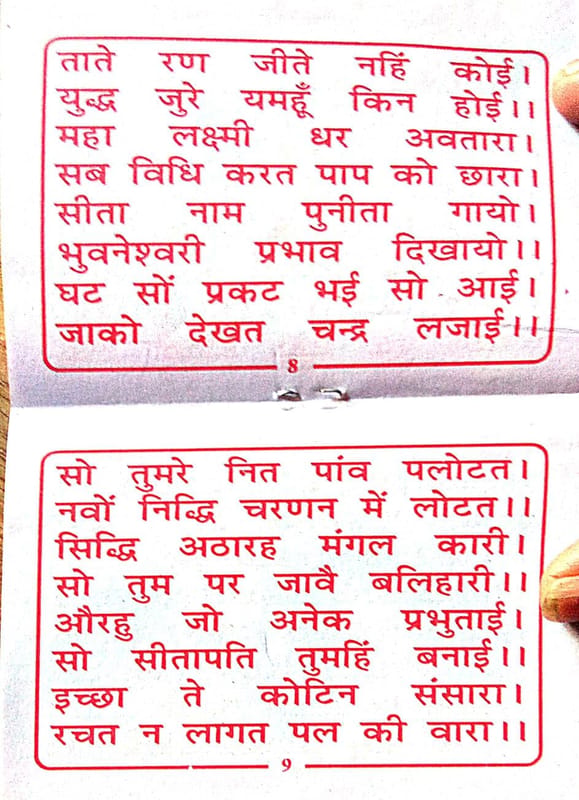 ताते रण जीते नहिं कोई।
युद्ध जुरे यमहूँ किन होई।।
महा लक्ष्मी धर अवतारा।
सब विधि करत पाप को छारा।
सीता नाम पुनीता गायो।
भुवनेश्वरी प्रभाव दिखायो।।
घट सों प्रकट भई सो आई।
जाको देखत चन्द्र लजाई।।
8
सो तुमरे नित पांव पलोटत।
नवों निद्धि चरणन में लोटत।।
सिद्धि अठारह मंगल कारी।
सो तुम पर जावै बलिहारी।।
औरहु जो अनेक प्रभुताई।
सो सीतापति तुमहिं बनाई।।
इच्छा ते कोटिन संसारा।
रचत न लागत पल की वारा।।
9